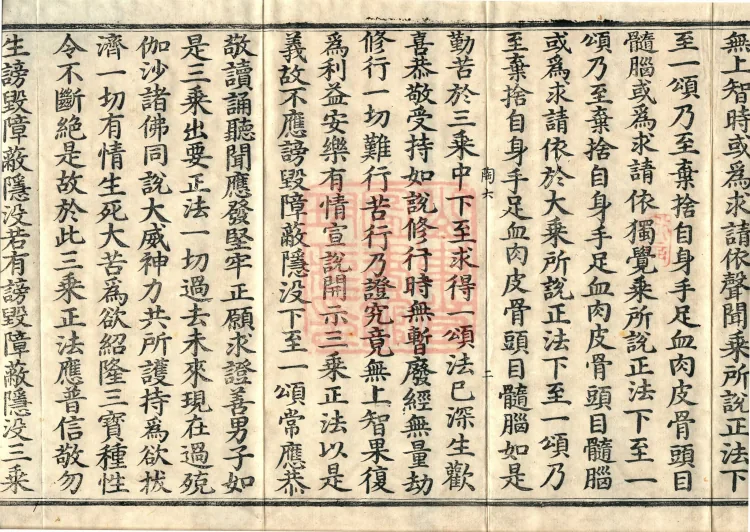 無上智時或爲求請依聲聞乘所說正法下
至一頌乃至棄捨自身手足血肉皮骨頭目
髓腦或爲求請依獨覺乘所說正法下至一
頌乃至棄捨自身手足血肉皮骨頭目髓腦
或爲求請依於大乘所說正法下至一頌乃
至棄捨自身手足血肉皮骨頭目髓腦如是
陶六 二
勤苦於三乘中下至求得一頌法已深生歡
喜恭敬受持如說修行時無暫廢經無量劫
修行一切難行苦行乃證究竟無上智果復
爲利益安樂有情宣說開示三乘正法以是
義故不應謗毀障蔽隱没下至一頌常應恭
敬讀誦聽聞應發堅牢正願求證善男子如
是三乘出要正法一切過去未來現在過殑
伽沙諸佛同說大威神力共所護持爲欲拔
濟一切有情生死大苦爲欲紹隆三寶種性
令不斷絶是故於此三乘正法應普信敬勿
生謗毀障蔽隱没若有謗毀障蔽隱没三乘